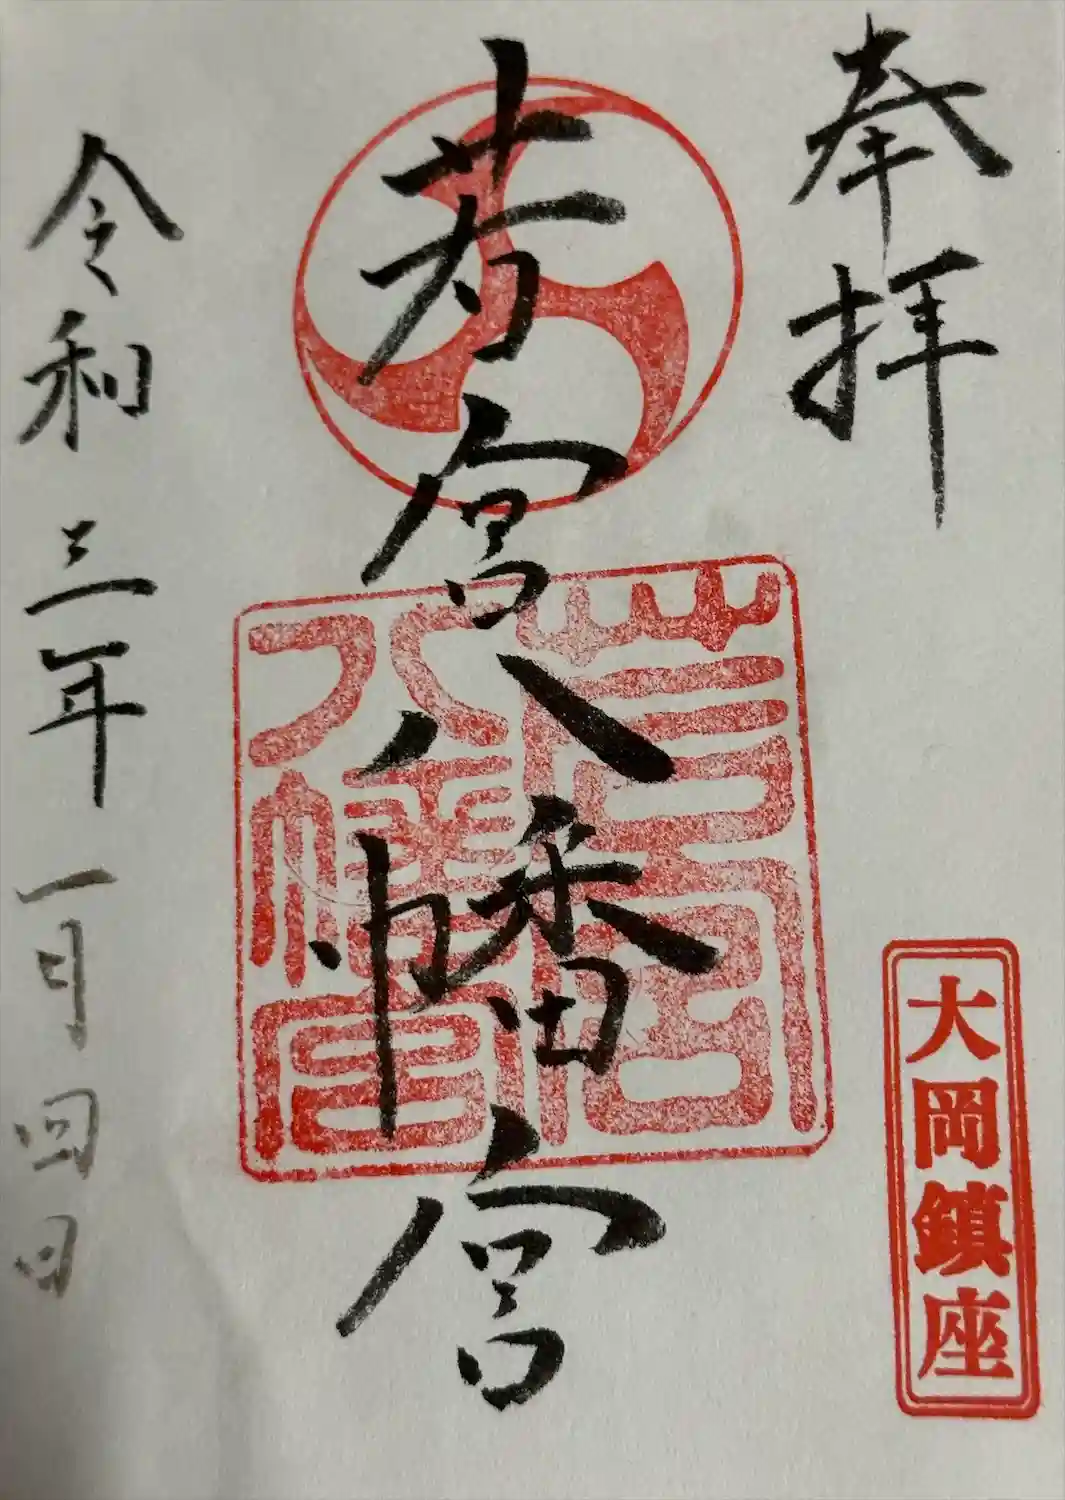 奉拝
大岡鎮座
若宮八幡宮
若宮八幡宮
令和三年一月四日